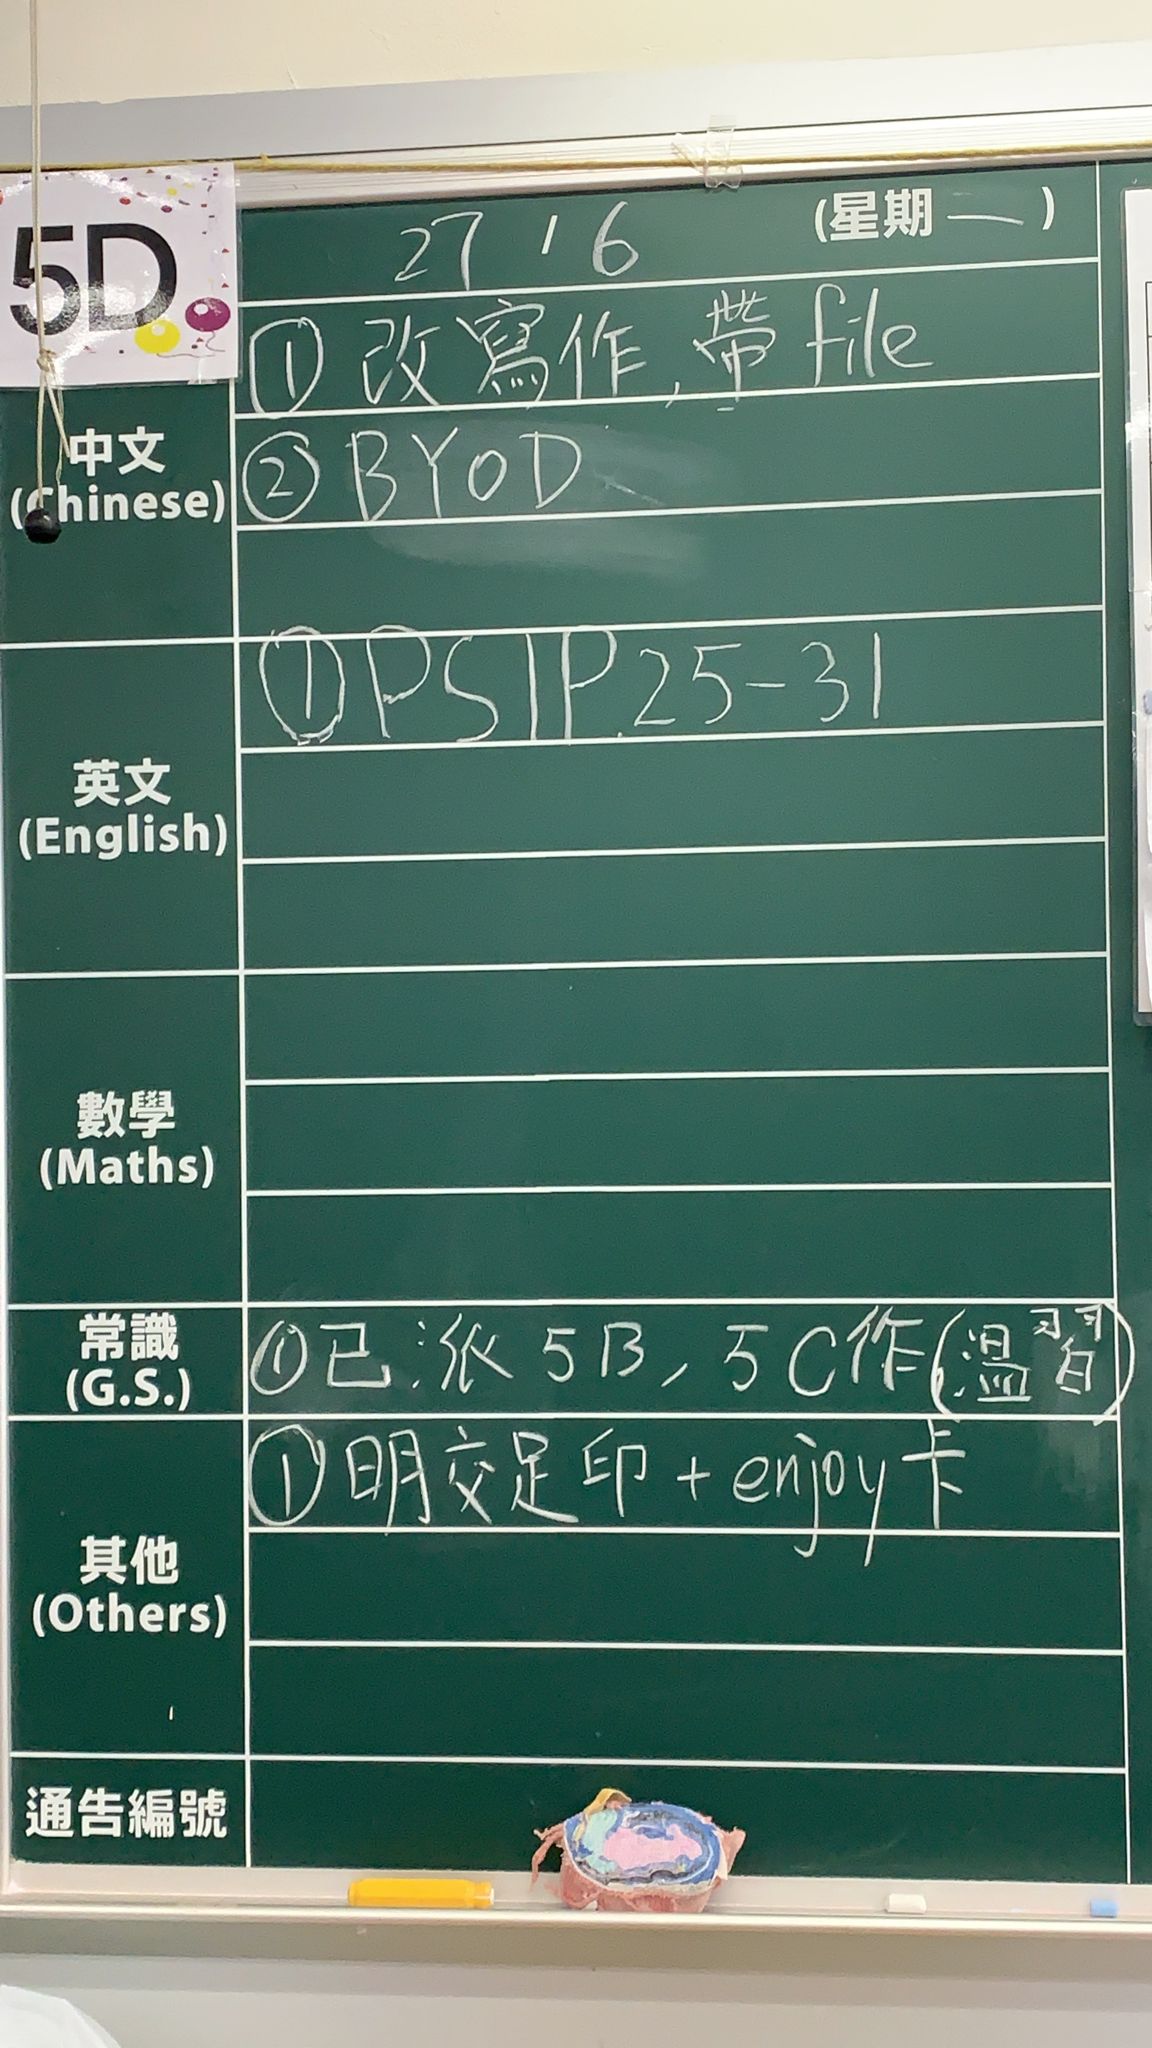 5D
27 / 6 (星期二)
① 改寫作, 帶 file
中文
(Chinese)
② BYOD
① PS1P.25-31
英文
(English)
數學
(Maths)
常識
(G.S.)
① 已派 5B, 5C作(溫習)
① 明交足印 + enjoy卡
其他
(Others)
通告編號